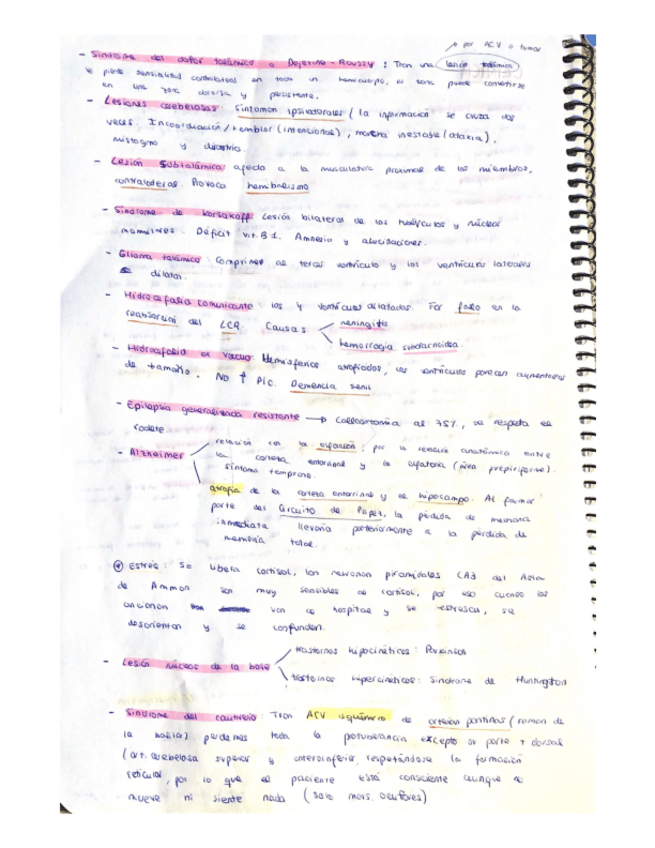 por ACV o tumor
- Síndrome del dolor talámico o Dejerine-Roussy: Tras una lesión talámica
se pierde sensibilidad contralateral en todo un hemicuerpo, esa zona puede convertirse
en una zona dolorosa y persistente.
- Lesiones cerebelosas: Síntomas ipsilaterales (la información se cruza dos
veces. Incoordinación/temblor (intencional), marcha inestable (ataxia),
nistagmo y disartria.
- Lesión Subtalámica afecta a la musculatura proximal de los miembros,
contralaterales. Provoca hemibalismo
- Síndrome de Korsakoff Lesión bilateral de los tubérculos y núcleos
mamilares. Déficit vit. B1. Amnesia y alucinaciones.
- Glioma talámico: Comprime al tercer ventrículo y los ventrículos laterales
se dilatan.
- Hidrocefalia comunicante: los 4 ventrículos dilatados. Por fallo en la
reabsorción del LCR. Causas
meningitis
hemorragia subaracnoidea.
- Hidrocefalia ex vacuo. Hemisferios atrofiados, los ventrículos parecen aumentados
de tamaño. No ↑ Pic. Demencia senil
- Epilepsia generalizada resistente → Callosotomía al 75%, se respeta el
rodete.
- Alzheimer
relación con la olfación, por la relación anatómica entre
la corteza entorrinal y la olfatoria (área prepiriforme).
síntoma temprano.
atrofia de la corteza entorrinal y el hipocampo. Al formar
parte del Circuito de Papez, la pérdida de memoria
inmediata llevaría posteriormente a la pérdida de
memoria total.
* Estrés: Se libera cortisol, las neuronas piramidales CA3 del Asta
de Ammon son muy sensibles al cortisol, por eso cuando los
ancianos van al hospital y se estresan, se
desorientan y se confunden.
- Lesión núcleos de la base
trastornos hipocinéticos: Parkinson
trastornos hipercinéticos: Síndrome de Huntington
- Síndrome del cautiverio Tras ACV isquémico de arterias pontinas (ramas de
la basilar) perdemos toda la protuberancia excepto su parte + dorsal
(art. cerebelosa superior y anteroinferior, respetándose la formación
reticular, por lo que el paciente está consciente aunque no
mueve ni siente nada (solo movs. oculares)